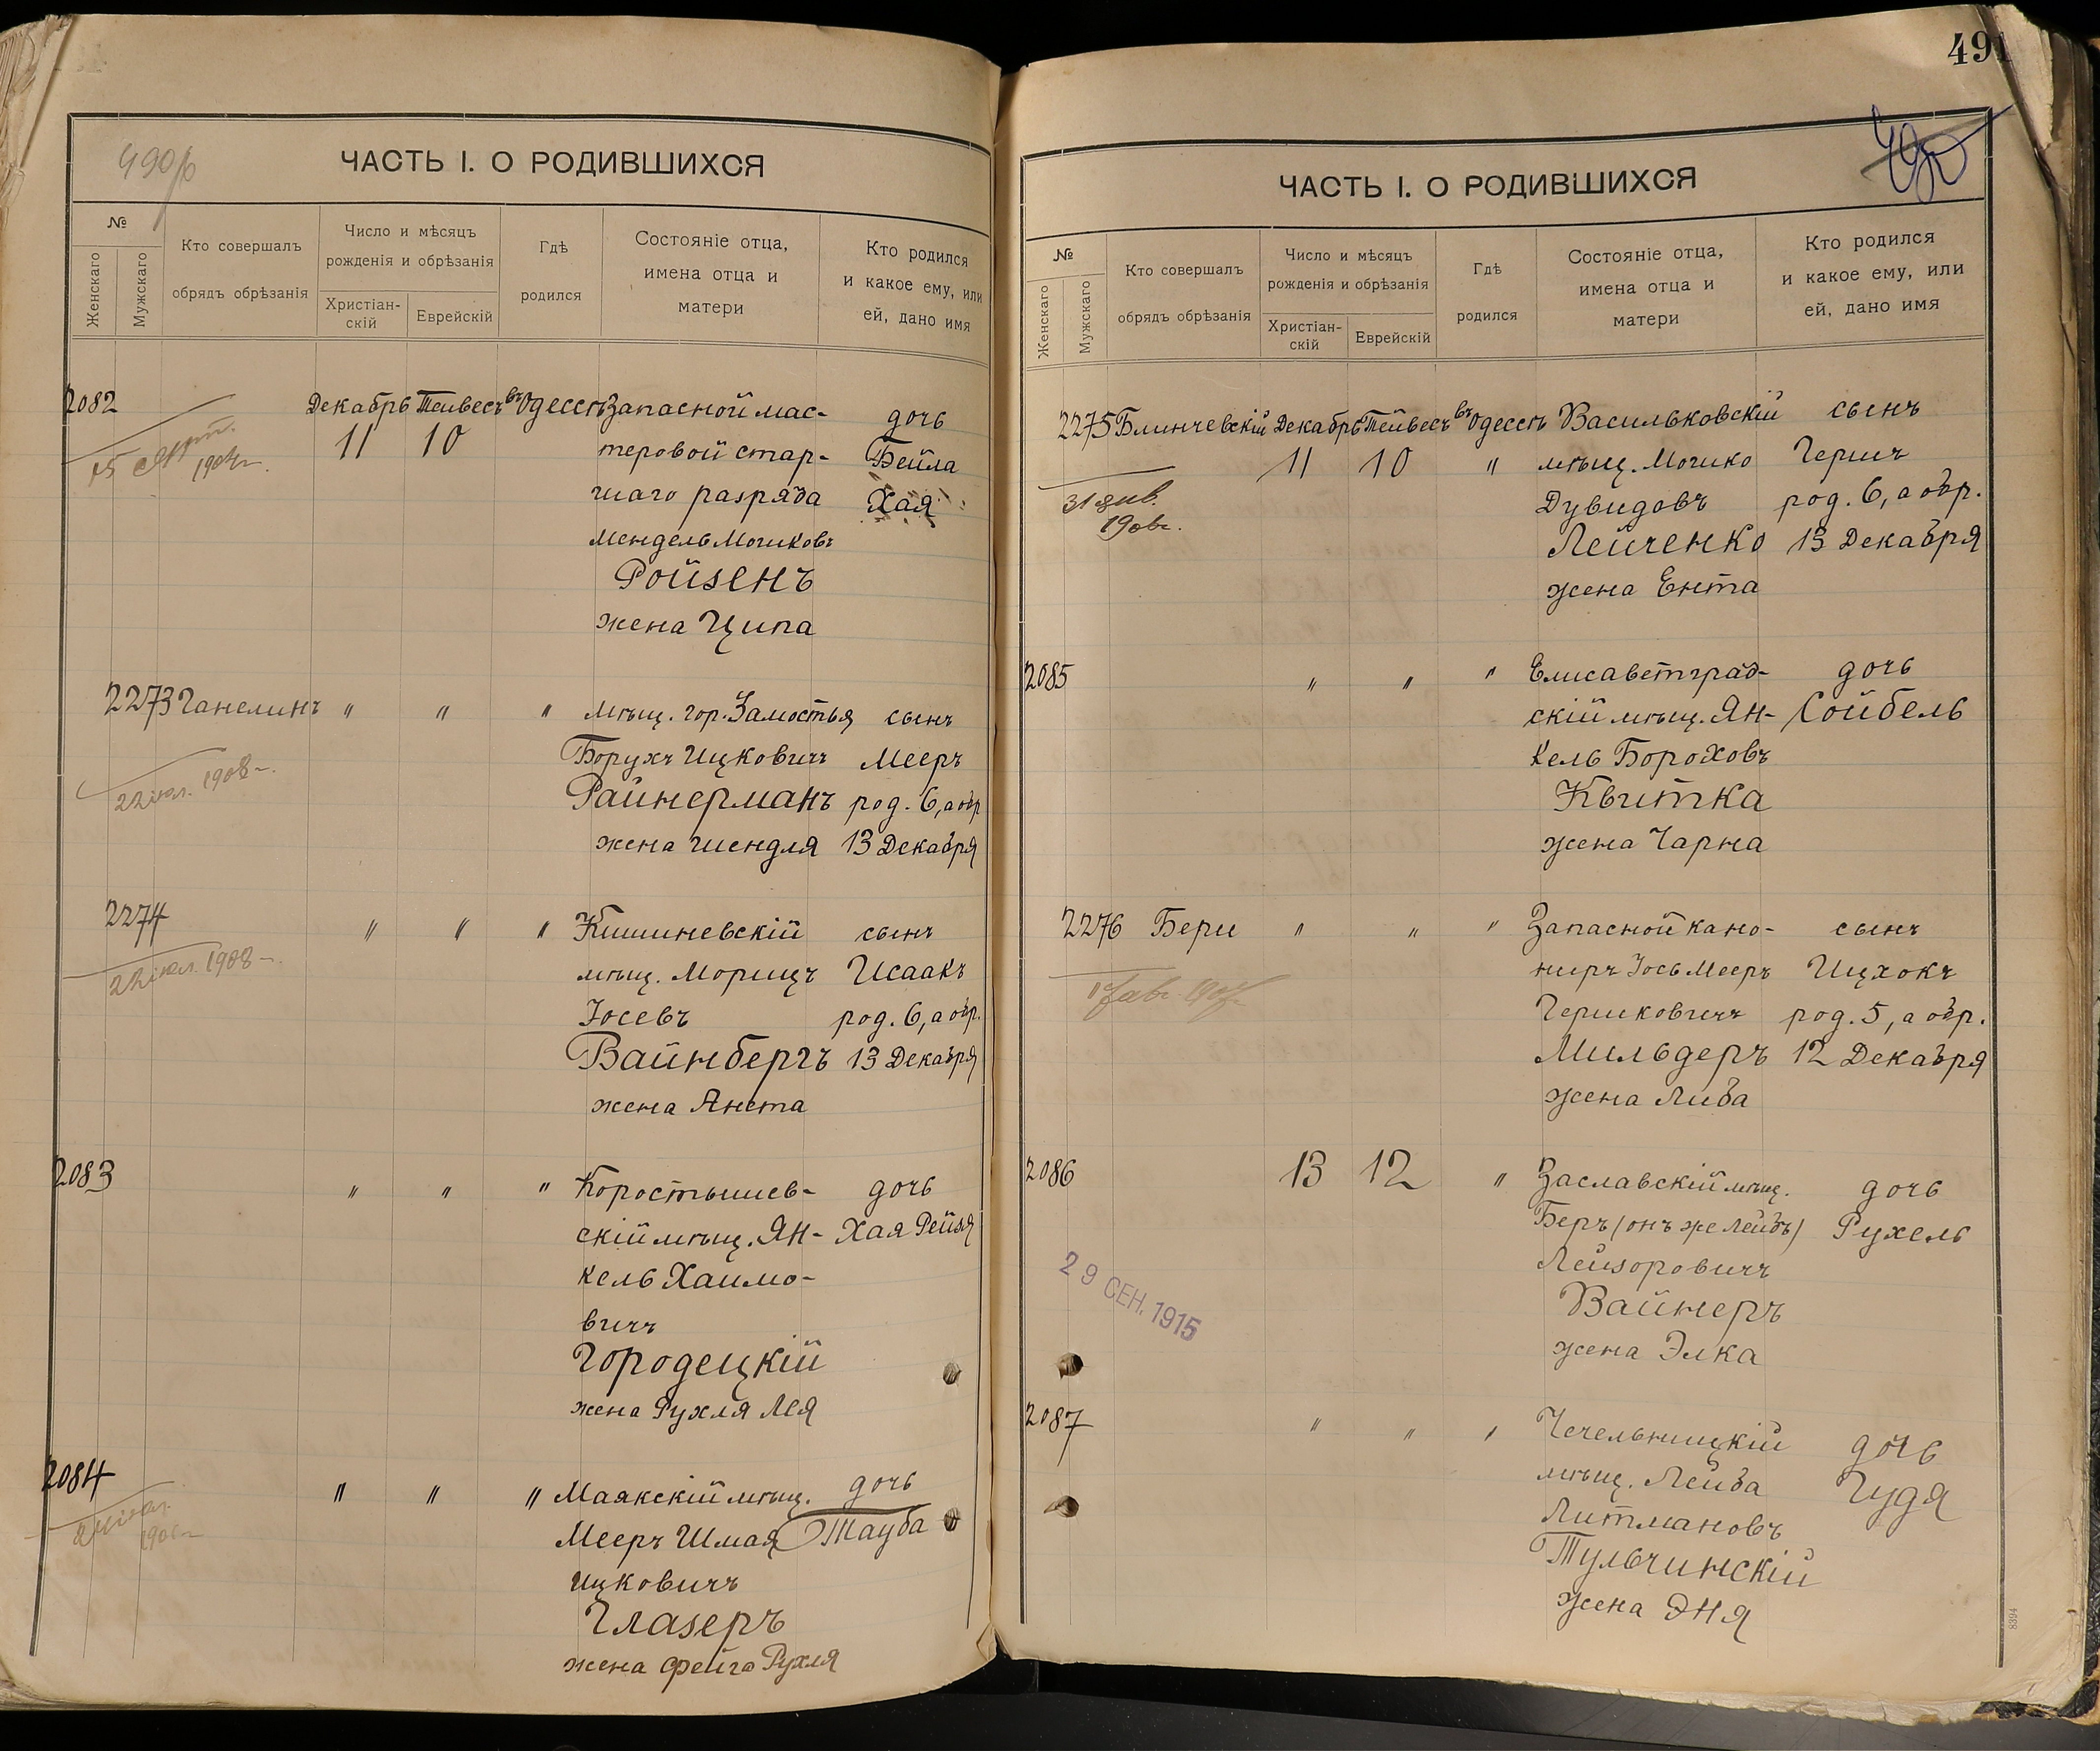 490/б
ЧАСТЬ I. О РОДИВШИХСЯ
№
Женскаго
Мужскаго
Кто совершалъ
обрядъ обрѣзанія
Число и мѣсяцъ
рожденія и обрѣзанія
Христіан-
скій
Еврейскій
Гдѣ
родился
Состояніе отца,
имена отца и
матери
Кто родился
и какое ему, или
ей, дано имя
2082 Декабрь Тейвесъ въ Одессѣ Запасной мас- дочь
11 10 теровой стар- Бейла
шаго разряда Хая
Мендель Мошковъ
Ройзенъ
жена Ципа
2273 Ганелинъ " " " мѣщ. гор. Замостья сынъ
Борухъ Ицковичъ Мееръ
22 1908 г. Райнерманъ род. 6, а обр
жена Шендля 13 Декабря
2274 " " " Кишиневскій сынъ
22 1908 г. мѣщ. Морицъ Исаакъ
Іосевъ род. 6, а обр.
Вайнбергъ 13 Декабря
жена Анета
2083 " " " Коростышев- дочь
скій мѣщ. Ян- Хая Рейзя
кель Хаимо-
вичъ
Городецкій
жена Рухля Лея
2084 " " " Маякскій мѣщ. дочь
Мееръ Шмая Тауба
Ицковичъ
Глазеръ
жена Фейга Рухля
491
490
ЧАСТЬ I. О РОДИВШИХСЯ
№
Женскаго
Мужскаго
Кто совершалъ
обрядъ обрѣзанія
Число и мѣсяцъ
рожденія и обрѣзанія
Христіан-
скій
Еврейскій
Гдѣ
родился
Состояніе отца,
имена отца и
матери
Кто родился
и какое ему, или
ей, дано имя
2275 Блинчевскій Декабрь Тейвесъ въ Одессѣ Васильковскій сынъ
11 10 " мѣщ. Мошко Гершъ
31 янв. Дувидовъ род. 6, а обр.
Лейченко 13 Декабря
жена Ента
2085 " " " Елисаветград- дочь
скій мѣщ. Ян- Сойбель
кель Бороховъ
Квитка
жена Чарна
2276 Бери " " " Запасной кано- сынъ
ниръ Іось Мееръ Ицхокъ
Гершковичъ род. 5, а обр.
Мильдеръ 12 Декабря
жена Либа
2086 13 12 " Заславскій мѣщ. дочь
Беръ (онъ же Лейбъ) Рухель
Лейзоровичъ
29 СЕН. 1915
Вайнеръ
жена Элка
2087 " " " Чечельницкій дочь
мѣщ. Лейба Гудя
Литмановъ
Тульчинскій
жена Эня
8394